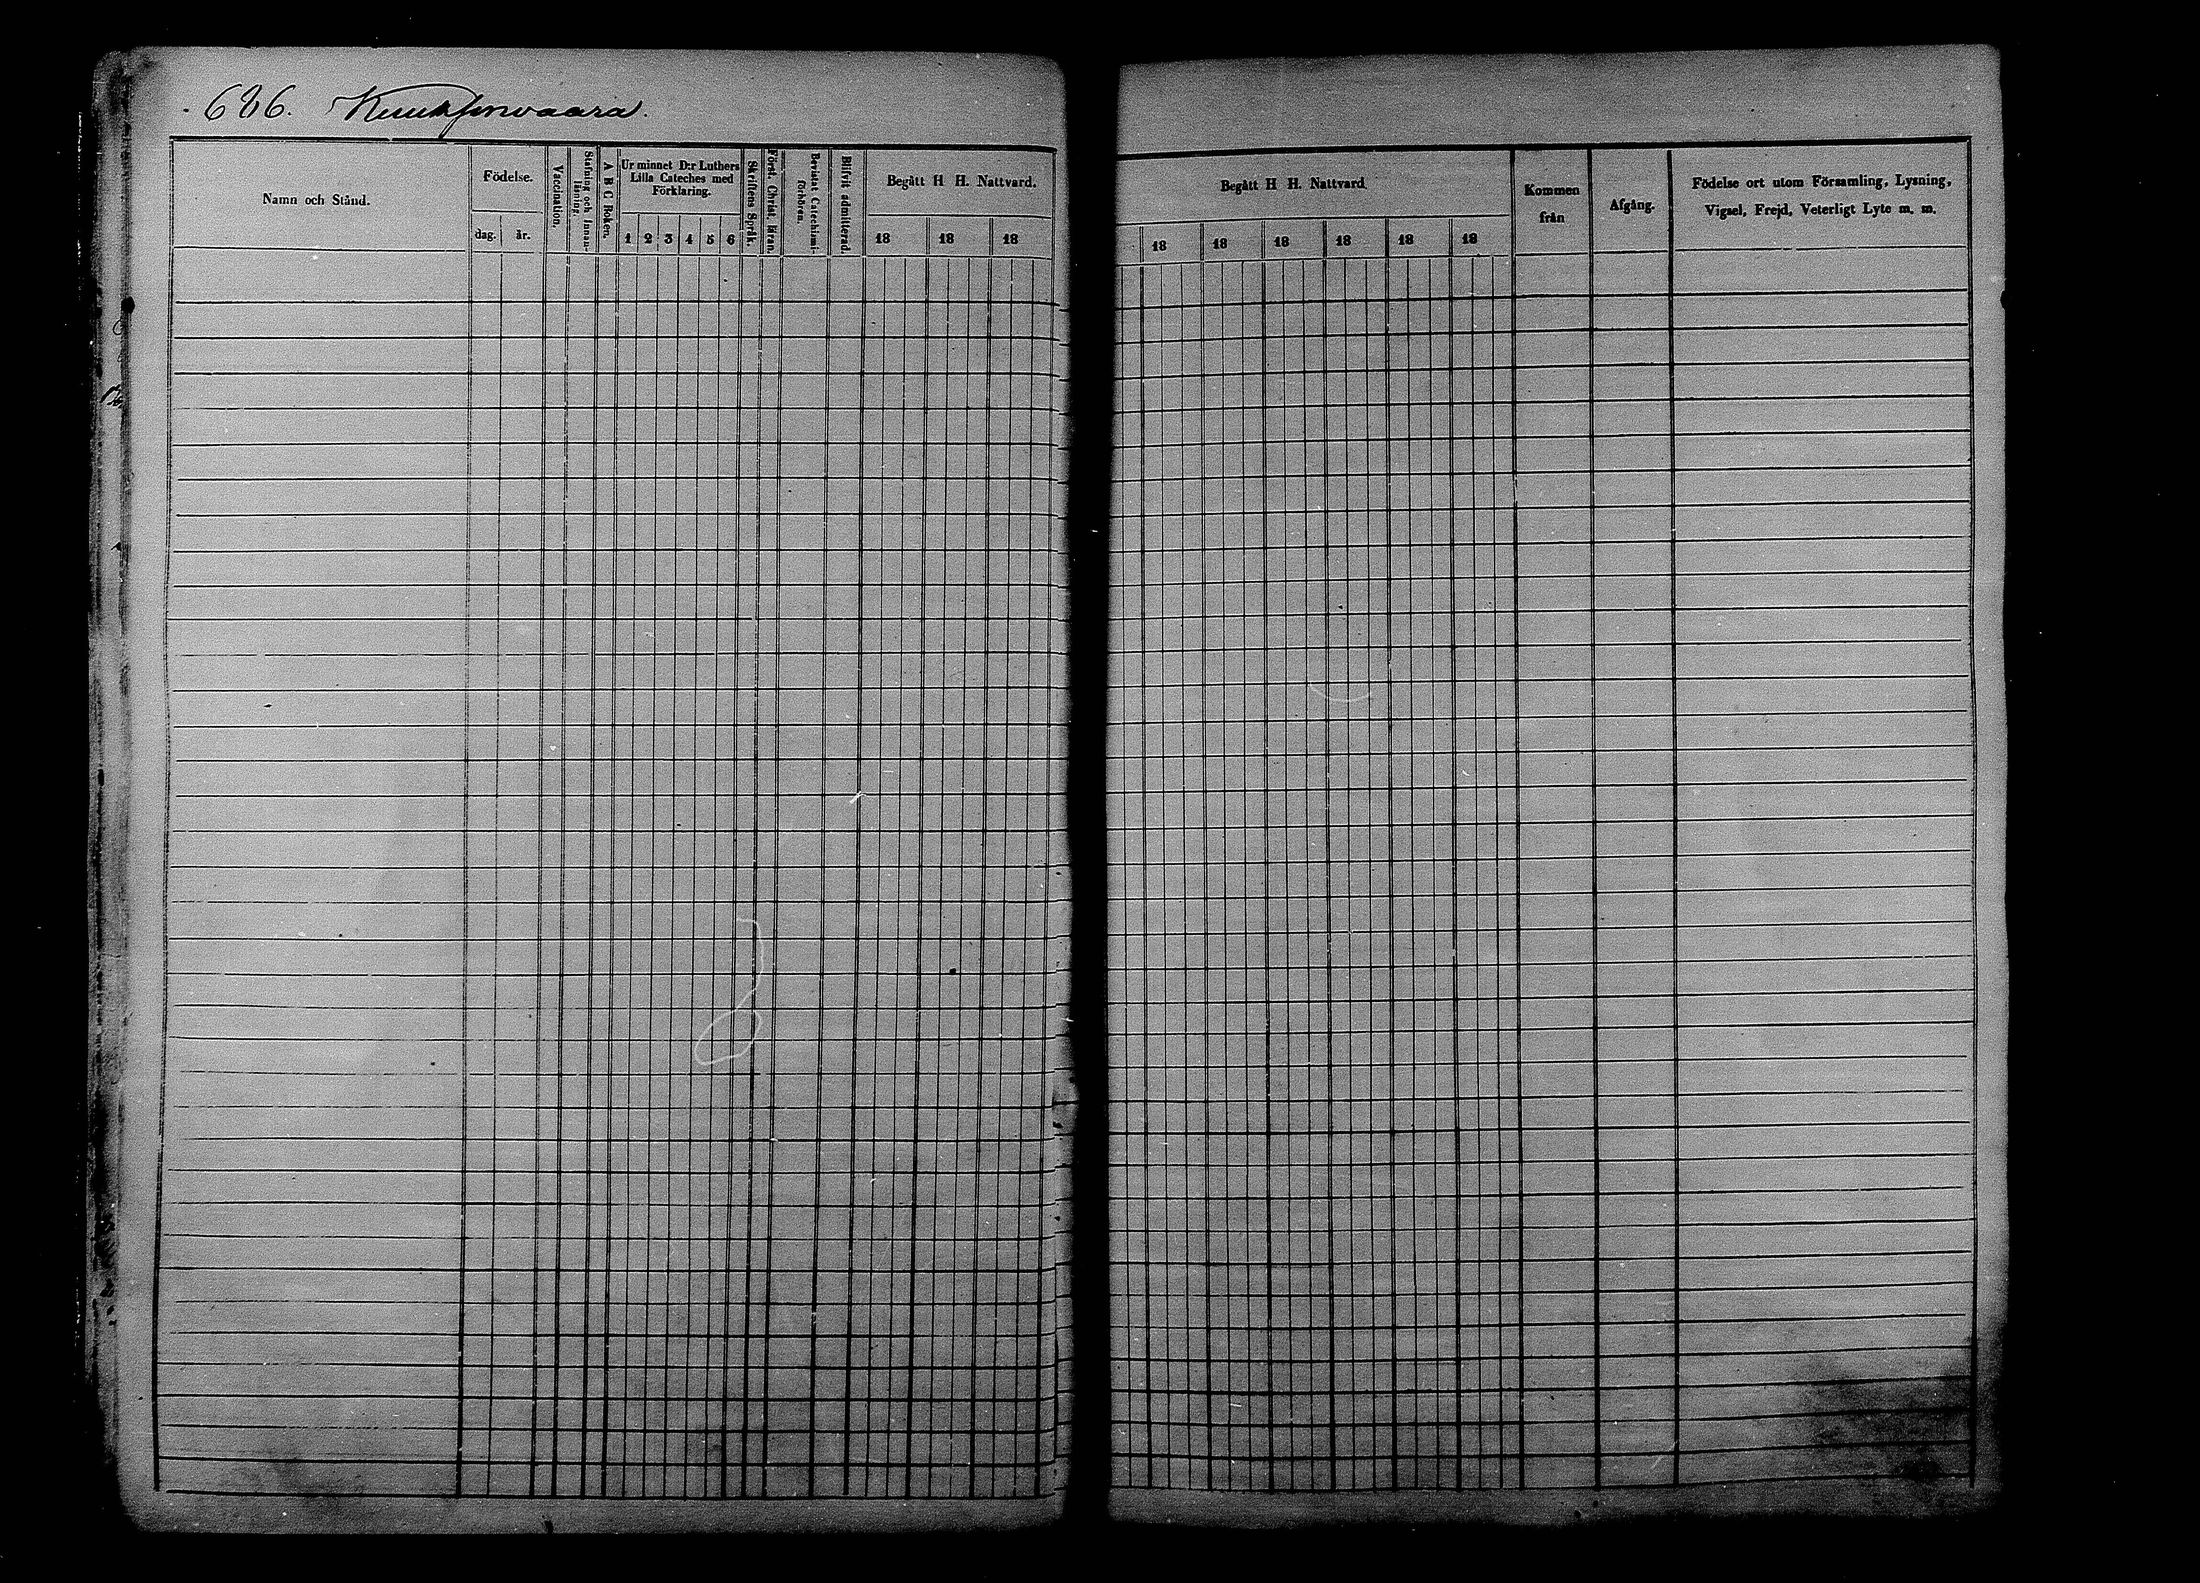 686. Kuuksenvaara.
Namn och Stånd.
Födelse.
dag. år.
Vaccination.
Stafning och Innan-
läsning.
A B C Boken.
Ur minnet D:r Luthers
Lilla Cateches med
Förklaring.
1 2 3 4 5 6
Skriftens Språk.
Först. Christ. läran.
Bevistat Catechismi-
förhören.
Blifvit admitterad.
Begått H H. Nattvard.
18 18 18
Begått H H. Nattvard.
18 18 18 18 18 18
Kommen
från
Afgång.
Födelse ort utom Församling, Lysning,
Vigsel, Frejd, Veterligt Lyte m. m.